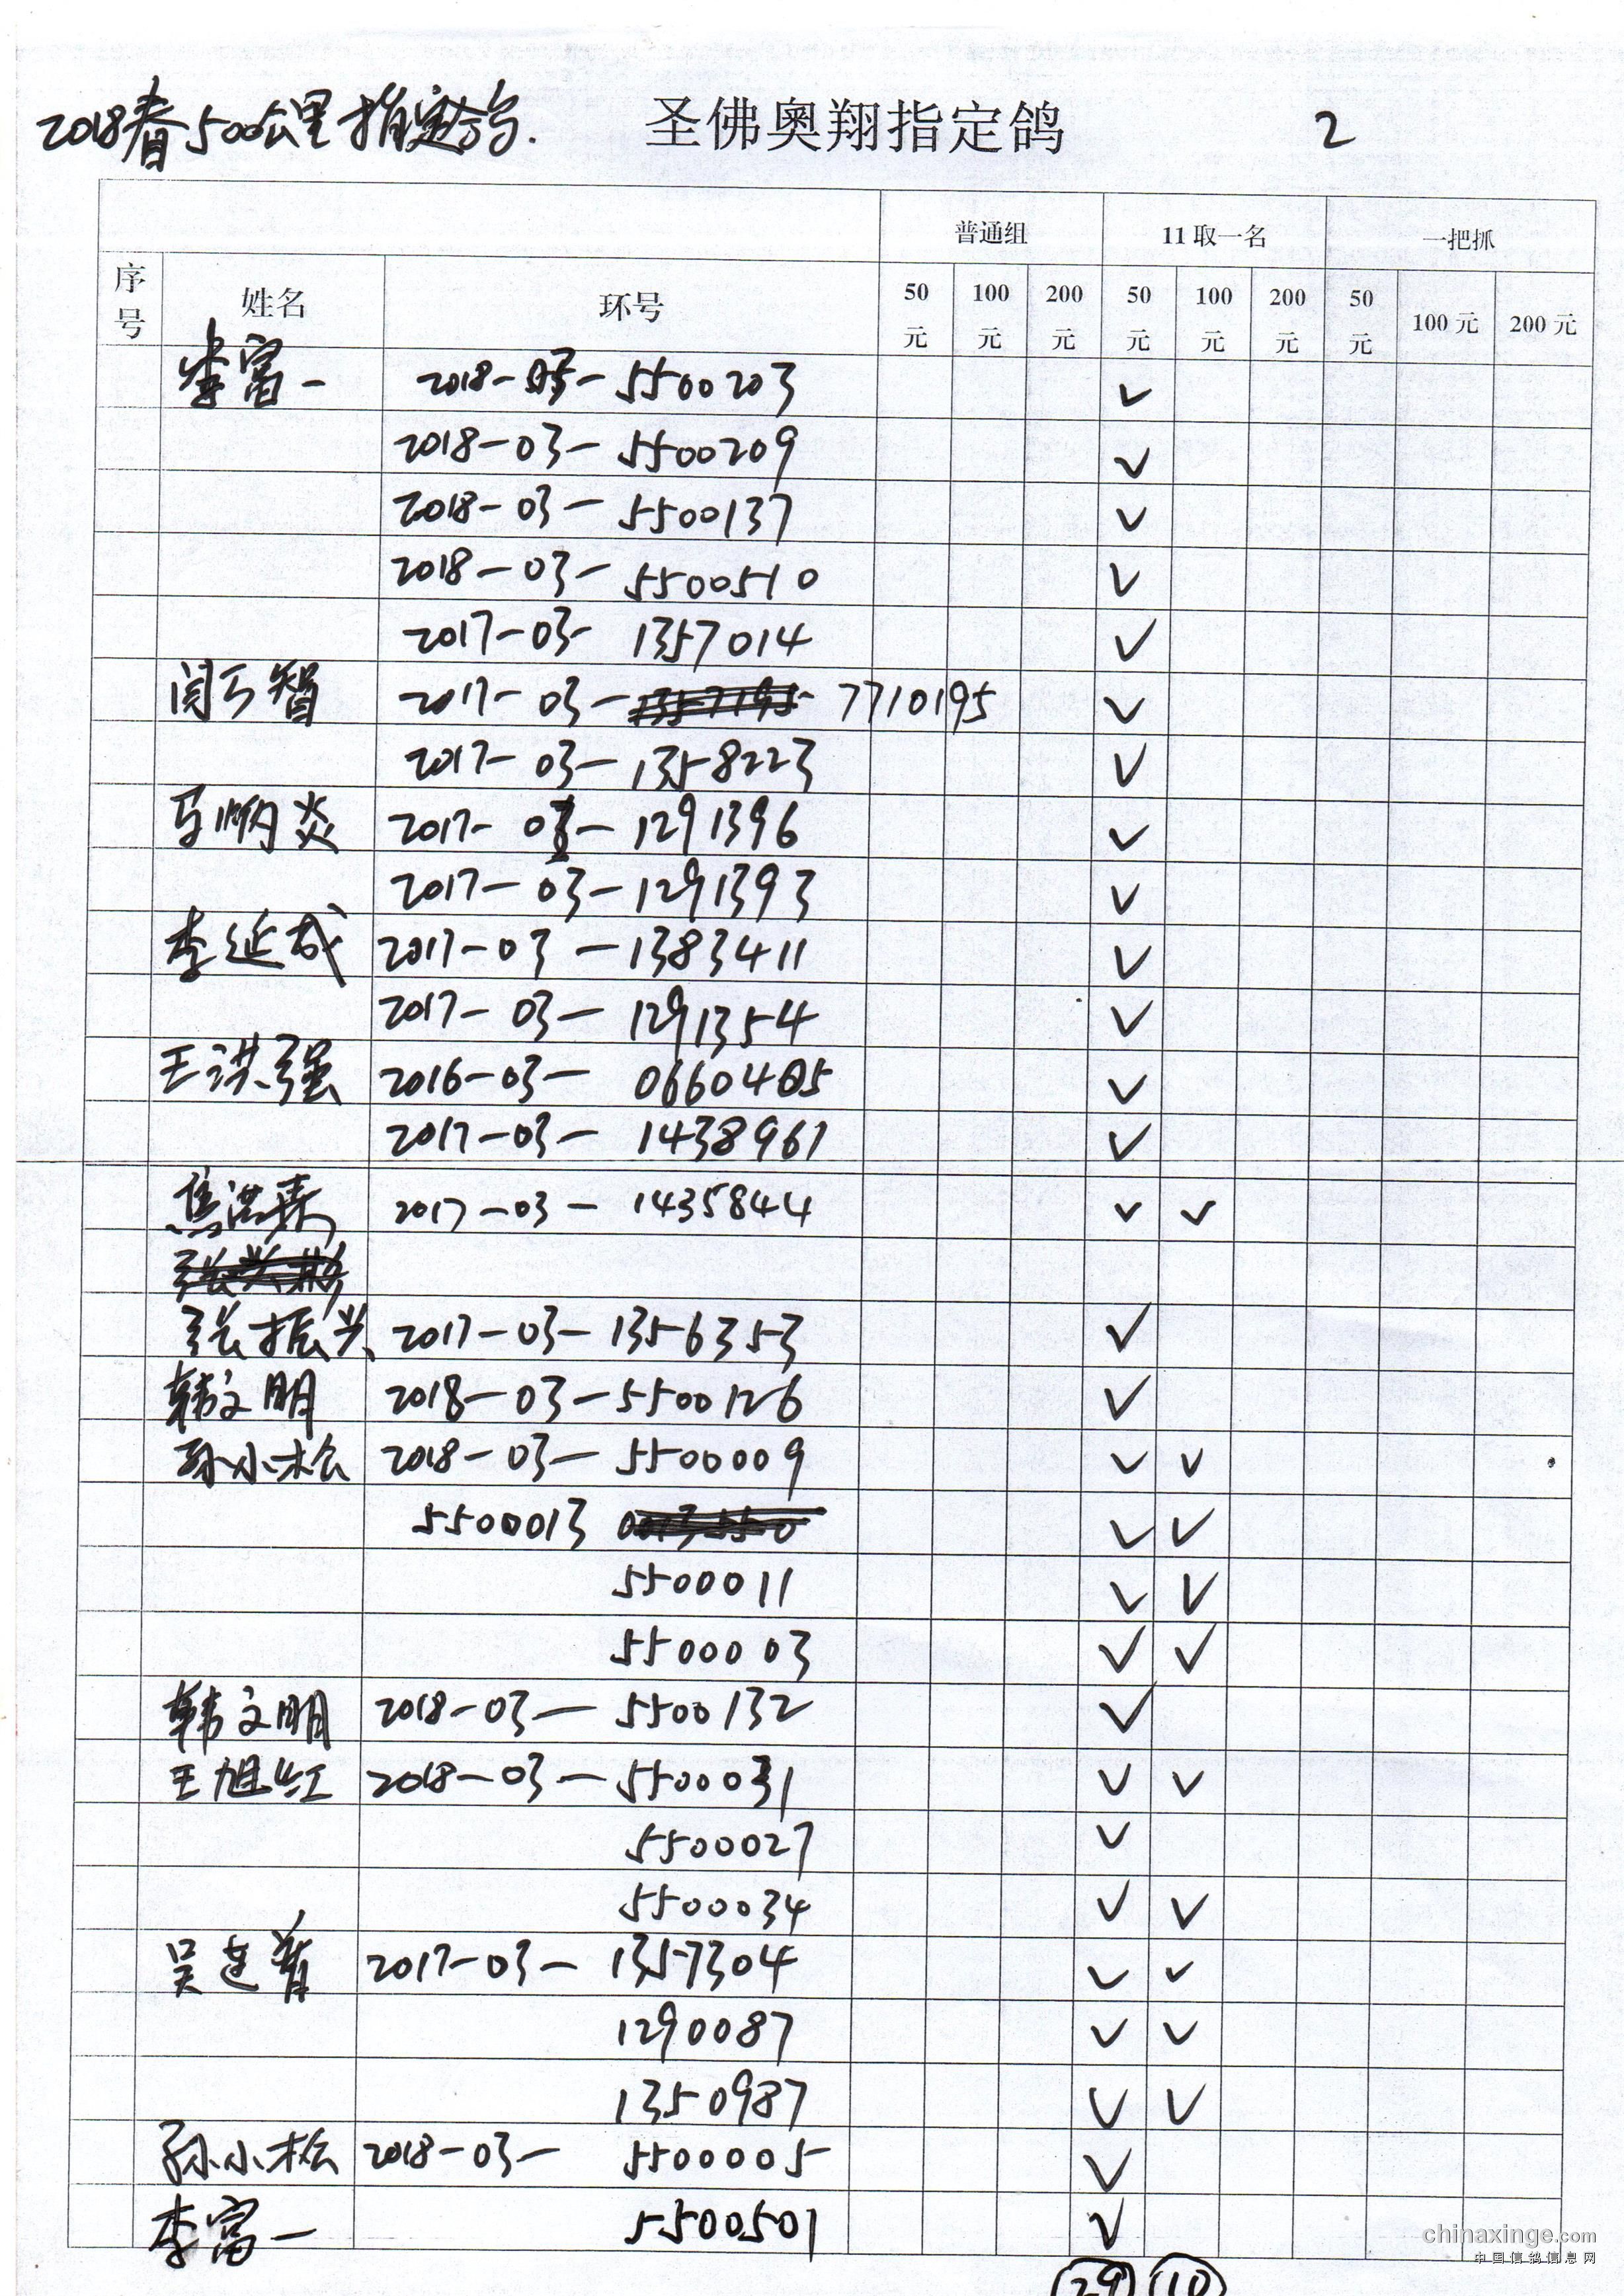 2018春500公里指定鸽. 圣佛奥翔指定鸽 2
普通组 11取一名 一把抓
序号 姓名 环号 50元 100元 200元 50元 100元 200元 50元 100元 200元
李富一 2018-03-5500203 ✓
2018-03-5500209 ✓
2018-03-5500137 ✓
2018-03-5500510 ✓
2017-03- 1357014 ✓
闫万智 2017-03- 7710195 ✓
2017-03-1358223 ✓
马炳炎 2017-03-1291396 ✓
2017-03-1291393 ✓
李延成 2017-03-1383411 ✓
2017-03-1291354 ✓
王洪强 2016-03- 0660405 ✓
2017-03- 1438961 ✓
2017-03-1435844 ✓ ✓
张振兴 2017-03-1356353 ✓
韩文明 2018-03-5500126 ✓
孙小松 2018-03-5500009 ✓ ✓
5500013 ✓ ✓
5500011 ✓ ✓
5500003 ✓ ✓
韩文明 2018-03-5500132 ✓
王旭红 2018-03-5500031 ✓ ✓
5500027 ✓
5500034 ✓ ✓
吴连普 2017-03-1357304 ✓ ✓
1290087 ✓ ✓
1350987 ✓ ✓
孙小松 2018-03-5500005 ✓
李富一 5500501 ✓
29 10
chinaxinge.com
中国信鸽信息网